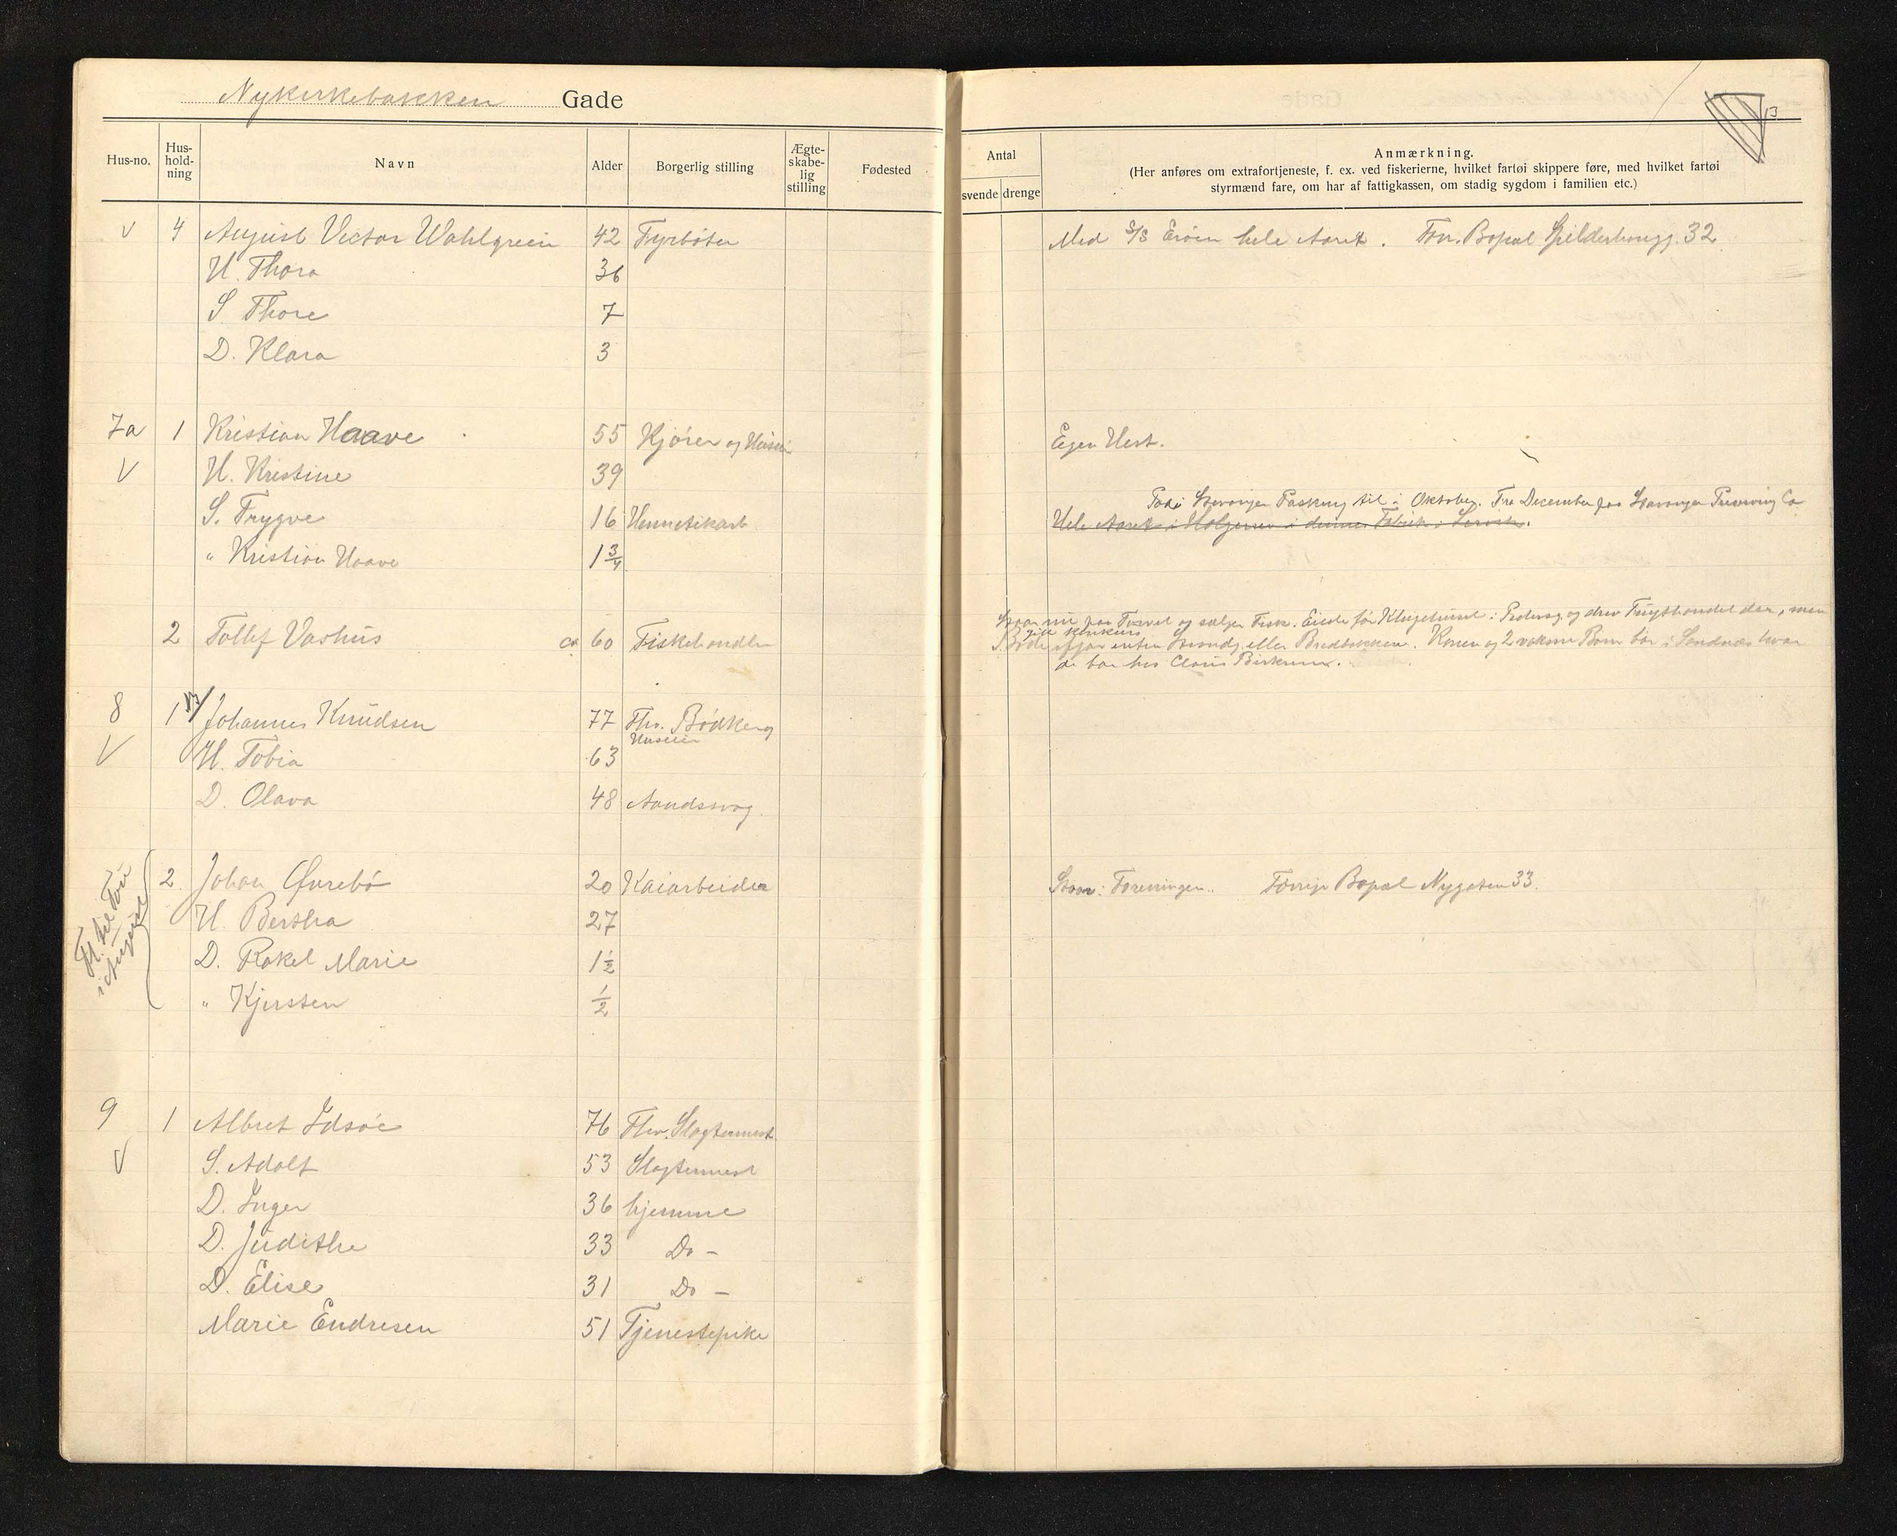 Nykirkebakken Gade
Hus-no. Hus-hold-ning Navn Alder Borgerlig stilling Ægte-skabe-lig stilling Fødested
Antal svende drenge
Anmærkning.
(Her anføres om extrafortjeneste, f. ex. ved fiskerierne, hvilket fartøi skippere føre, med hvilket fartøi
styrmænd fare, om har af fattigkassen, om stadig sygdom i familien etc.)
13
V 4 August Victor Wahlgreen 42 Fyrbøter Med S/S Erøen hele Aaret. For. Bopæl Spilderhaugg. 32
H. Thora 36
S Thore 7
D. Klara 3
7a 1 Kristian Haave 55 Kjører og Huseier Egen Hest.
V H. Kristine 39
S. Trygve 16 Hermetikarb
Stavanger Packing til i Oktober. Fra December paa Stavanger Preserving Co
Hele Aaret i
" Kristian Haave 1 3/4
2 Tollef Vashus ca 60 Fiskehandler
Staar nu paa Torvet og sælger Fisk. Eiede før i Pedersg. og drev Frugthandel der, men
gik konkurs
ifjor enten Strandg. eller Bredbakken. Konen og 2 voksne Børn bor i Sandnes hvor
de bor hos Claus Birkrem.
8 1 Johannes Knudsen 77 Fhv. Bødker og
Huseier
V H. Tobia 63
D. Olava 48 Aandssvag
Fl. til
i August
2. Johan Øvrebø 20 Kaiarbeider Staar i Foreningen. Forrige Bopæl Nygaten 33.
H. Bertha 27
D. Rakel Marie 1 1/2
" Kjersten 1/2
9 1 Albret Idsøe 76 Fhv. Slagtermest.
V S. Adolf 53 Slagtermest
D. Inger 36 hjemme
D. Judithe 33 Do -
D. Elise 31 Do -
Marie Endresen 51 Tjenestepike